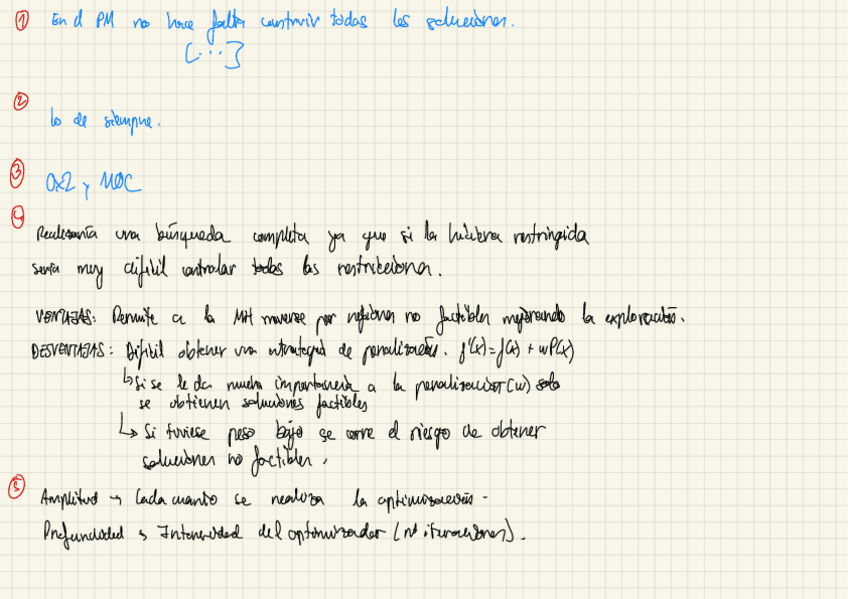 ① En el PM no hace falta construir todas las soluciones.
[...]
② lo de siempre.
③ OX2 y MOC
④ Realizaría una búsqueda completa ya que si la hiciera restringida
sería muy difícil controlar todas las restricciones.
VENTAJAS: Permite a la MH moverse por regiones no factibles mejorando la exploración.
DESVENTAJAS: Difícil obtener una estrategia de penalización. f'(x)=f(x) + wP(x)
↳ Si se le da mucha importancia a la penalización (w) solo
se obtienen soluciones factibles
↳ Si tuviese peso bajo se corre el riesgo de obtener
soluciones no factibles.
⑤ Amplitud → Cada cuanto se realiza la optimización.
Profundidad → Intensidad del optimizador (nº iteraciones).